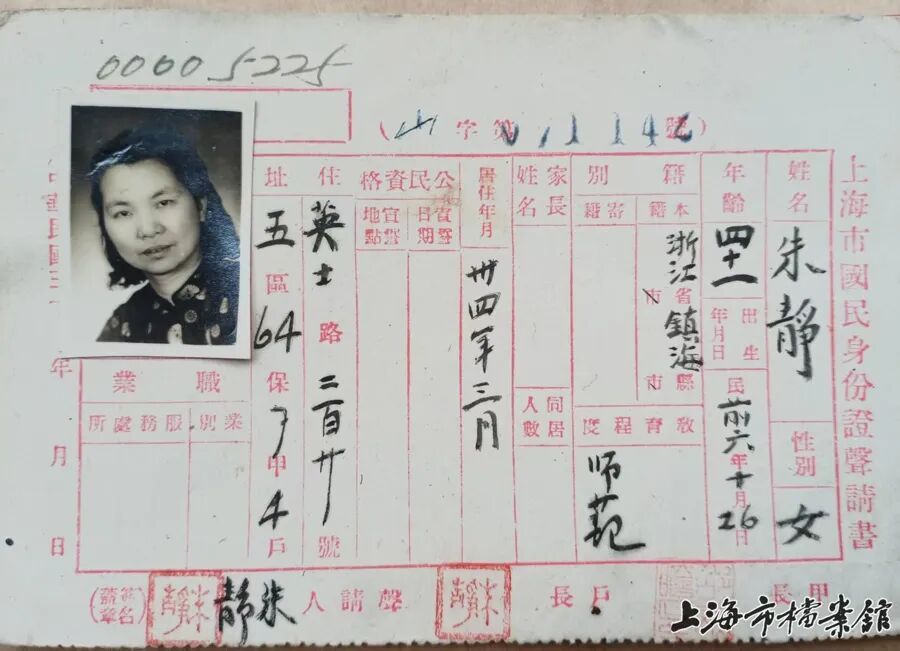 上海市國民身份證聲請書
00005225
字第 號
姓名 朱靜
性別 女
年齡 四十一
出生年月日 民前六年十月26日
籍別
本籍 浙江省鎮海縣
市 市
寄籍
教育程度 师范
家長姓名
同居人數
居住年月 卅四年三月
公民資格
宣誓日期
宣誓地點
住址 英士路二百廿號
五區64保7甲4戶
職業
業別
服務處所
年 月 日
甲長
戶長 朱靜
聲請人 朱靜 朱靜
(簽名蓋章)
上海市檔案館